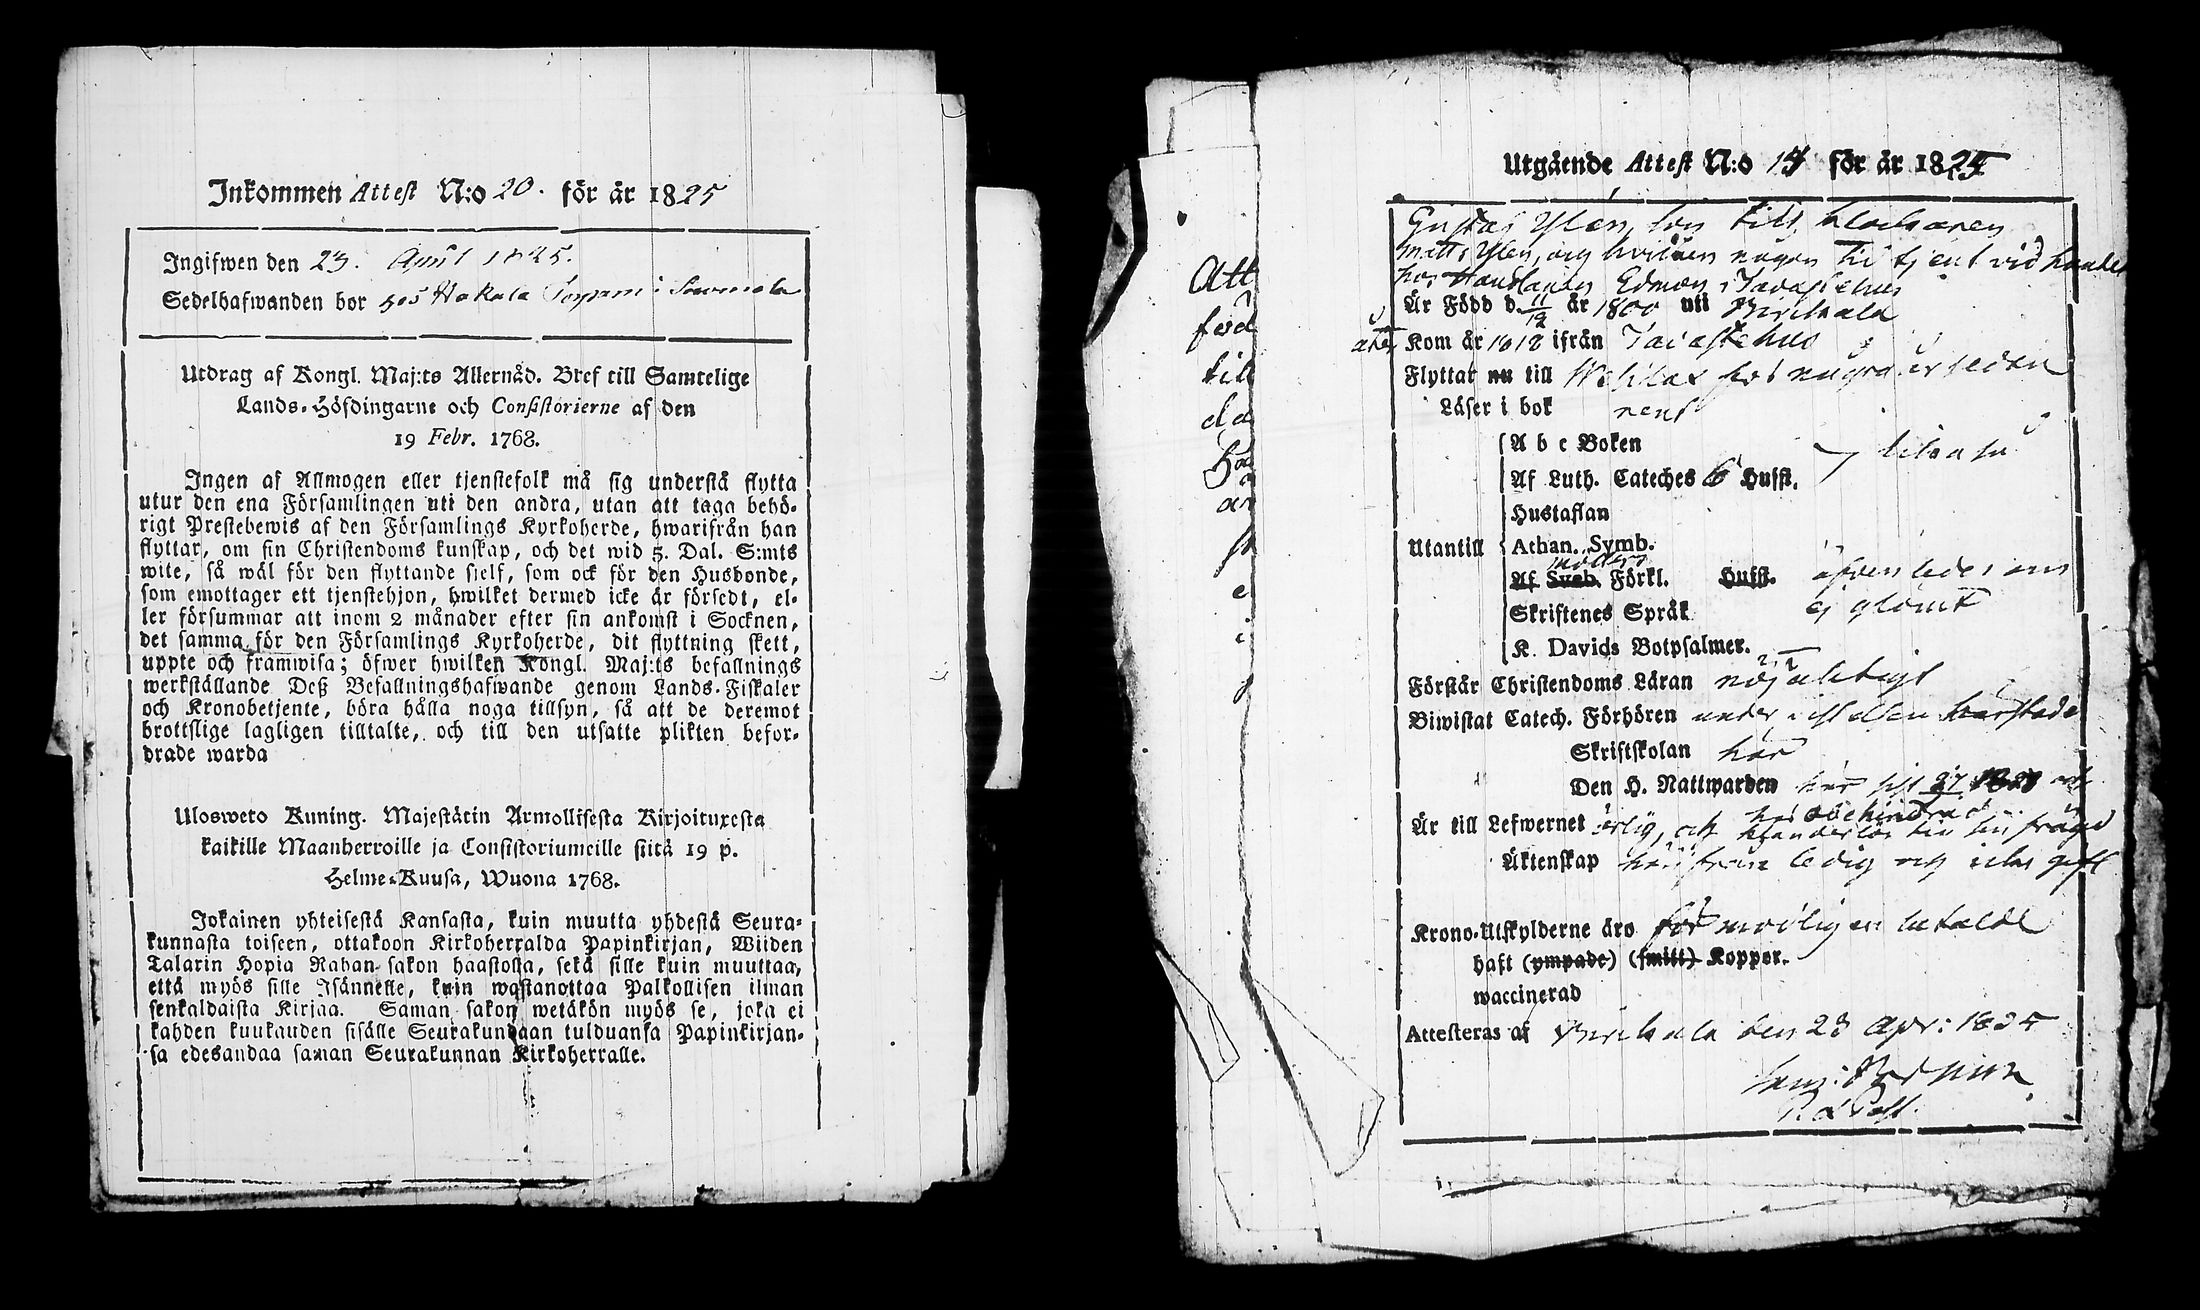 Inkommen Attest N:o 20. för år 1825
Ingifwen den 23. April 1825.
Sedelhafwanden bor hos Hakala i
Utdrag af Kongl. Maj:ts Allernåd. Bref till Samtelige
Lands-Höfdingarne och Consistorierne af den
19 Febr. 1768.
Ingen af Allmogen eller tjenstefolk må sig understå flytta
utur den ena Församlingen uti den andra, utan att taga behö-
rigt Prestebewis af den Församlings Kyrkoherde, hwarifrån han
flyttar, om sin Christendoms kunskap, och det wid 5. Dal. S:mts
wite, så wäl för den flyttande sjelf, som ock för den Husbonde,
som emottager ett tjenstehjon, hwilket dermed icke är försedt, el-
ler försummar att inom 2 månader efter sin ankomst i Socknen,
det samma för den Församlings Kyrkoherde, dit flyttning skett,
uppte och framwisa; öfwer hwilken Kongl. Maj:ts befallnings
werkställande Deß Befallningshafwande genom Lands-Fiskaler
och Kronobetjente, böra hålla noga tillsyn, så att de deremot
brottslige lagligen tilltalte, och till den utsatte plikten befor-
drade warda
Ulosweto Kuning. Majestätin Armollisesta Kirjoituxesta
kaikille Maanherroille ja Consistoriumeille siitä 19 p.
Helme-Kuusa, Wuona 1768.
Jokainen yhteisestä Kansasta, kuin muutta yhdestä Seura-
kunnasta toiseen, ottakoon Kirkoherralda Papinkirjan, Wiiden
Talarin Hopia Rahan sakon haastolla, sekä sille kuin muuttaa,
että myös sille Isännelle, kuin wastanottaa Palkollisen ilman
senkaldaista Kirjaa. Saman sakon wetäkön myös se, joka ei
kahden kuukauden sisälle Seurakundaan tulduansa Papinkirjan-
sa edesandaa saman Seurakunnan Kirkoherralle.
Att
föd
till
Utgående Attest N:o 17 för år 1825
Gustaf Ylén, son till klockaren
Matts Ylen, och hvilken någon tid tjent vid handel
hos Handlanden Edman i Tavastehus
Är Född d. 11/12 år 1800 uti Birkkala
Kom år 1818 ifrån Tavastehus
Flyttar nu till för några år sedan
Läser i bok rent
A b c Boken
Af Luth. Cateches 6 Hufst.
Hustaflan
Utantill Athan. Symb.
Af Symb. Förkl. Hufst. äfven
Skriftenes Språk ej glömt
K. Davids Botpsalmer.
Förstår Christendoms Läran nöjaktigt
Biwistat Catech. Förhören
Skriftskolan här
Den H. Nattwarden här sist och
är obehindrad
Är till Lefwernet ärlig, och
Äktenskap ledig och icke gift
Krono-Utskylderne äro förmodligen betalde
haft (ympade) (smitt) Koppor.
waccinerad
Attesteras af Birkkala den 23 Apr: 1825